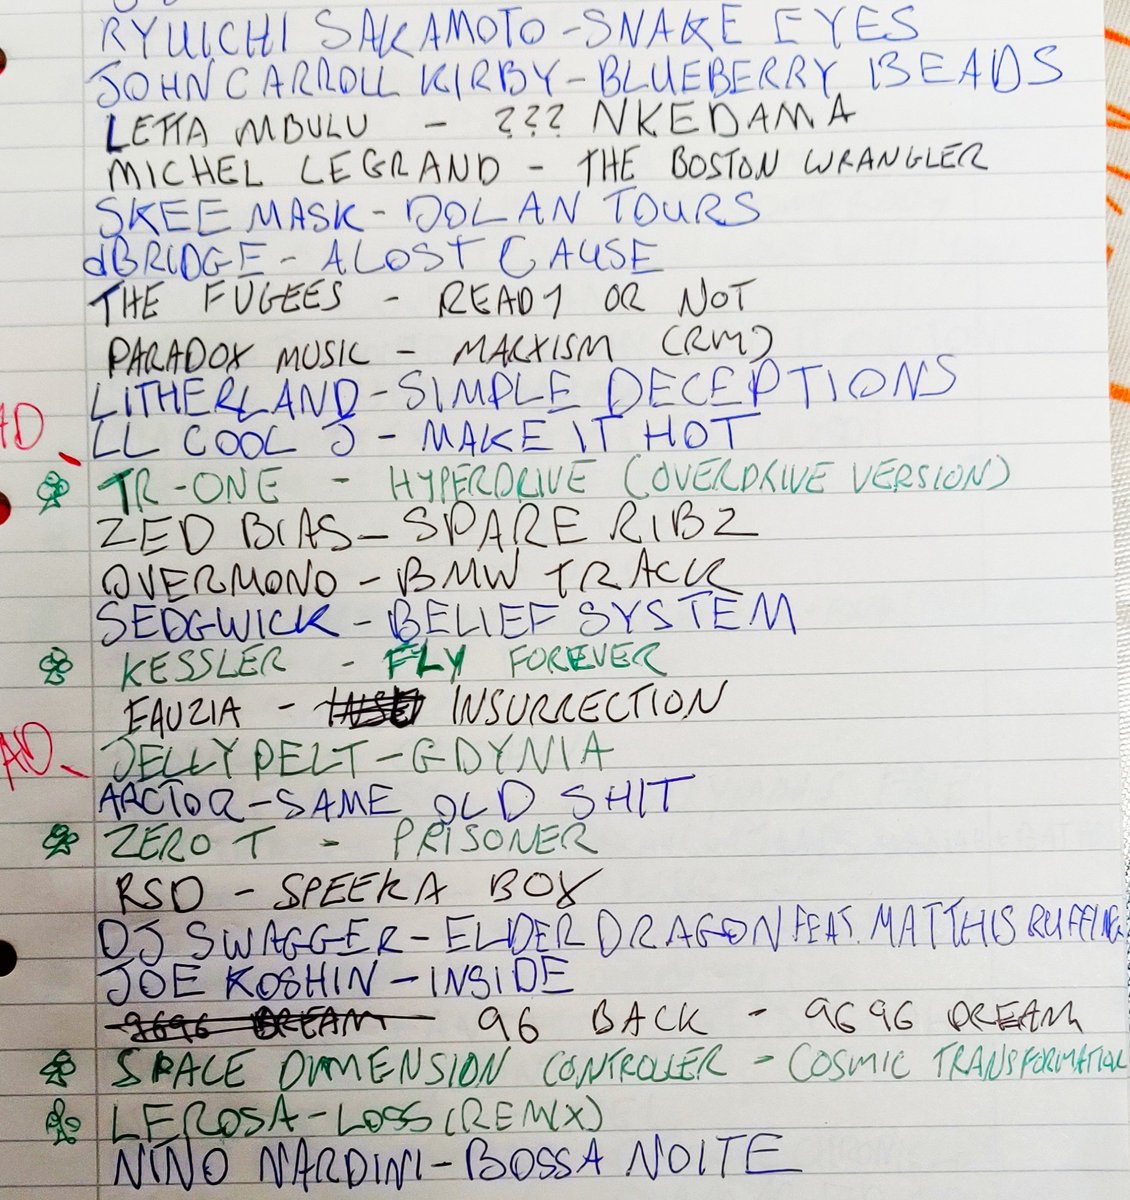 RYUICHI SAKAMOTO - SNAKE EYES
JOHN CARROLL KIRBY - BLUEBERRY BEADS
LETTA MBULU - ??? NKEDAMA
MICHEL LEGRAND - THE BOSTON WRANGLER
SKEE MASK - DOLAN TOURS
dBRIDGE - A LOST CAUSE
THE FUGEES - READY OR NOT
PARADOX MUSIC - MARXISM (RM)
LITHERLAND - SIMPLE DECEPTIONS
AD LL COOL J - MAKE IT HOT
TR-ONE - HYPERDRIVE (OVERDRIVE VERSION)
ZED BIAS - SPARE RIBZ
OVERMONO - BMW TRACK
SEDGWICK - BELIEF SYSTEM
KESSLER - FLY FOREVER
FAUZIA - INSURRECTION
AD JELLYPELT - GDYNIA
ARCTOR - SAME OLD SHIT
ZERO T - PRISONER
RSD - SPEEKA BOX
DJ SWAGGER - ELDER DRAGON FEAT. MATTHIS RUFFING
JOE KOSHIN - INSIDE
9696 DREAM 96 BACK - 9696 DREAM
SPACE DIMENSION CONTROLLER - COSMIC TRANSFORMATION
LEROSA - LOSS (REMIX)
NINO NARDINI - BOSSA NOITE